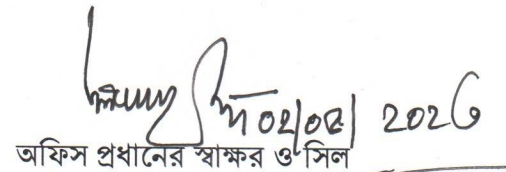 ০২|০৫| ২০২৬
অফিস প্রধানের স্বাক্ষর ও সিল